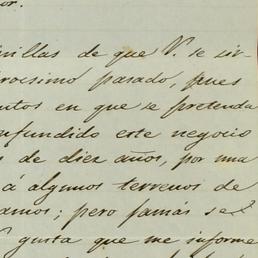 or.
nillas de que V. se sir-
róximo pasado, pues
ntos en que se pretenda
nfundido este negocio
s de diez años, por una
á algunos terrenos de
amos; pero jamás se
gusta que me informe